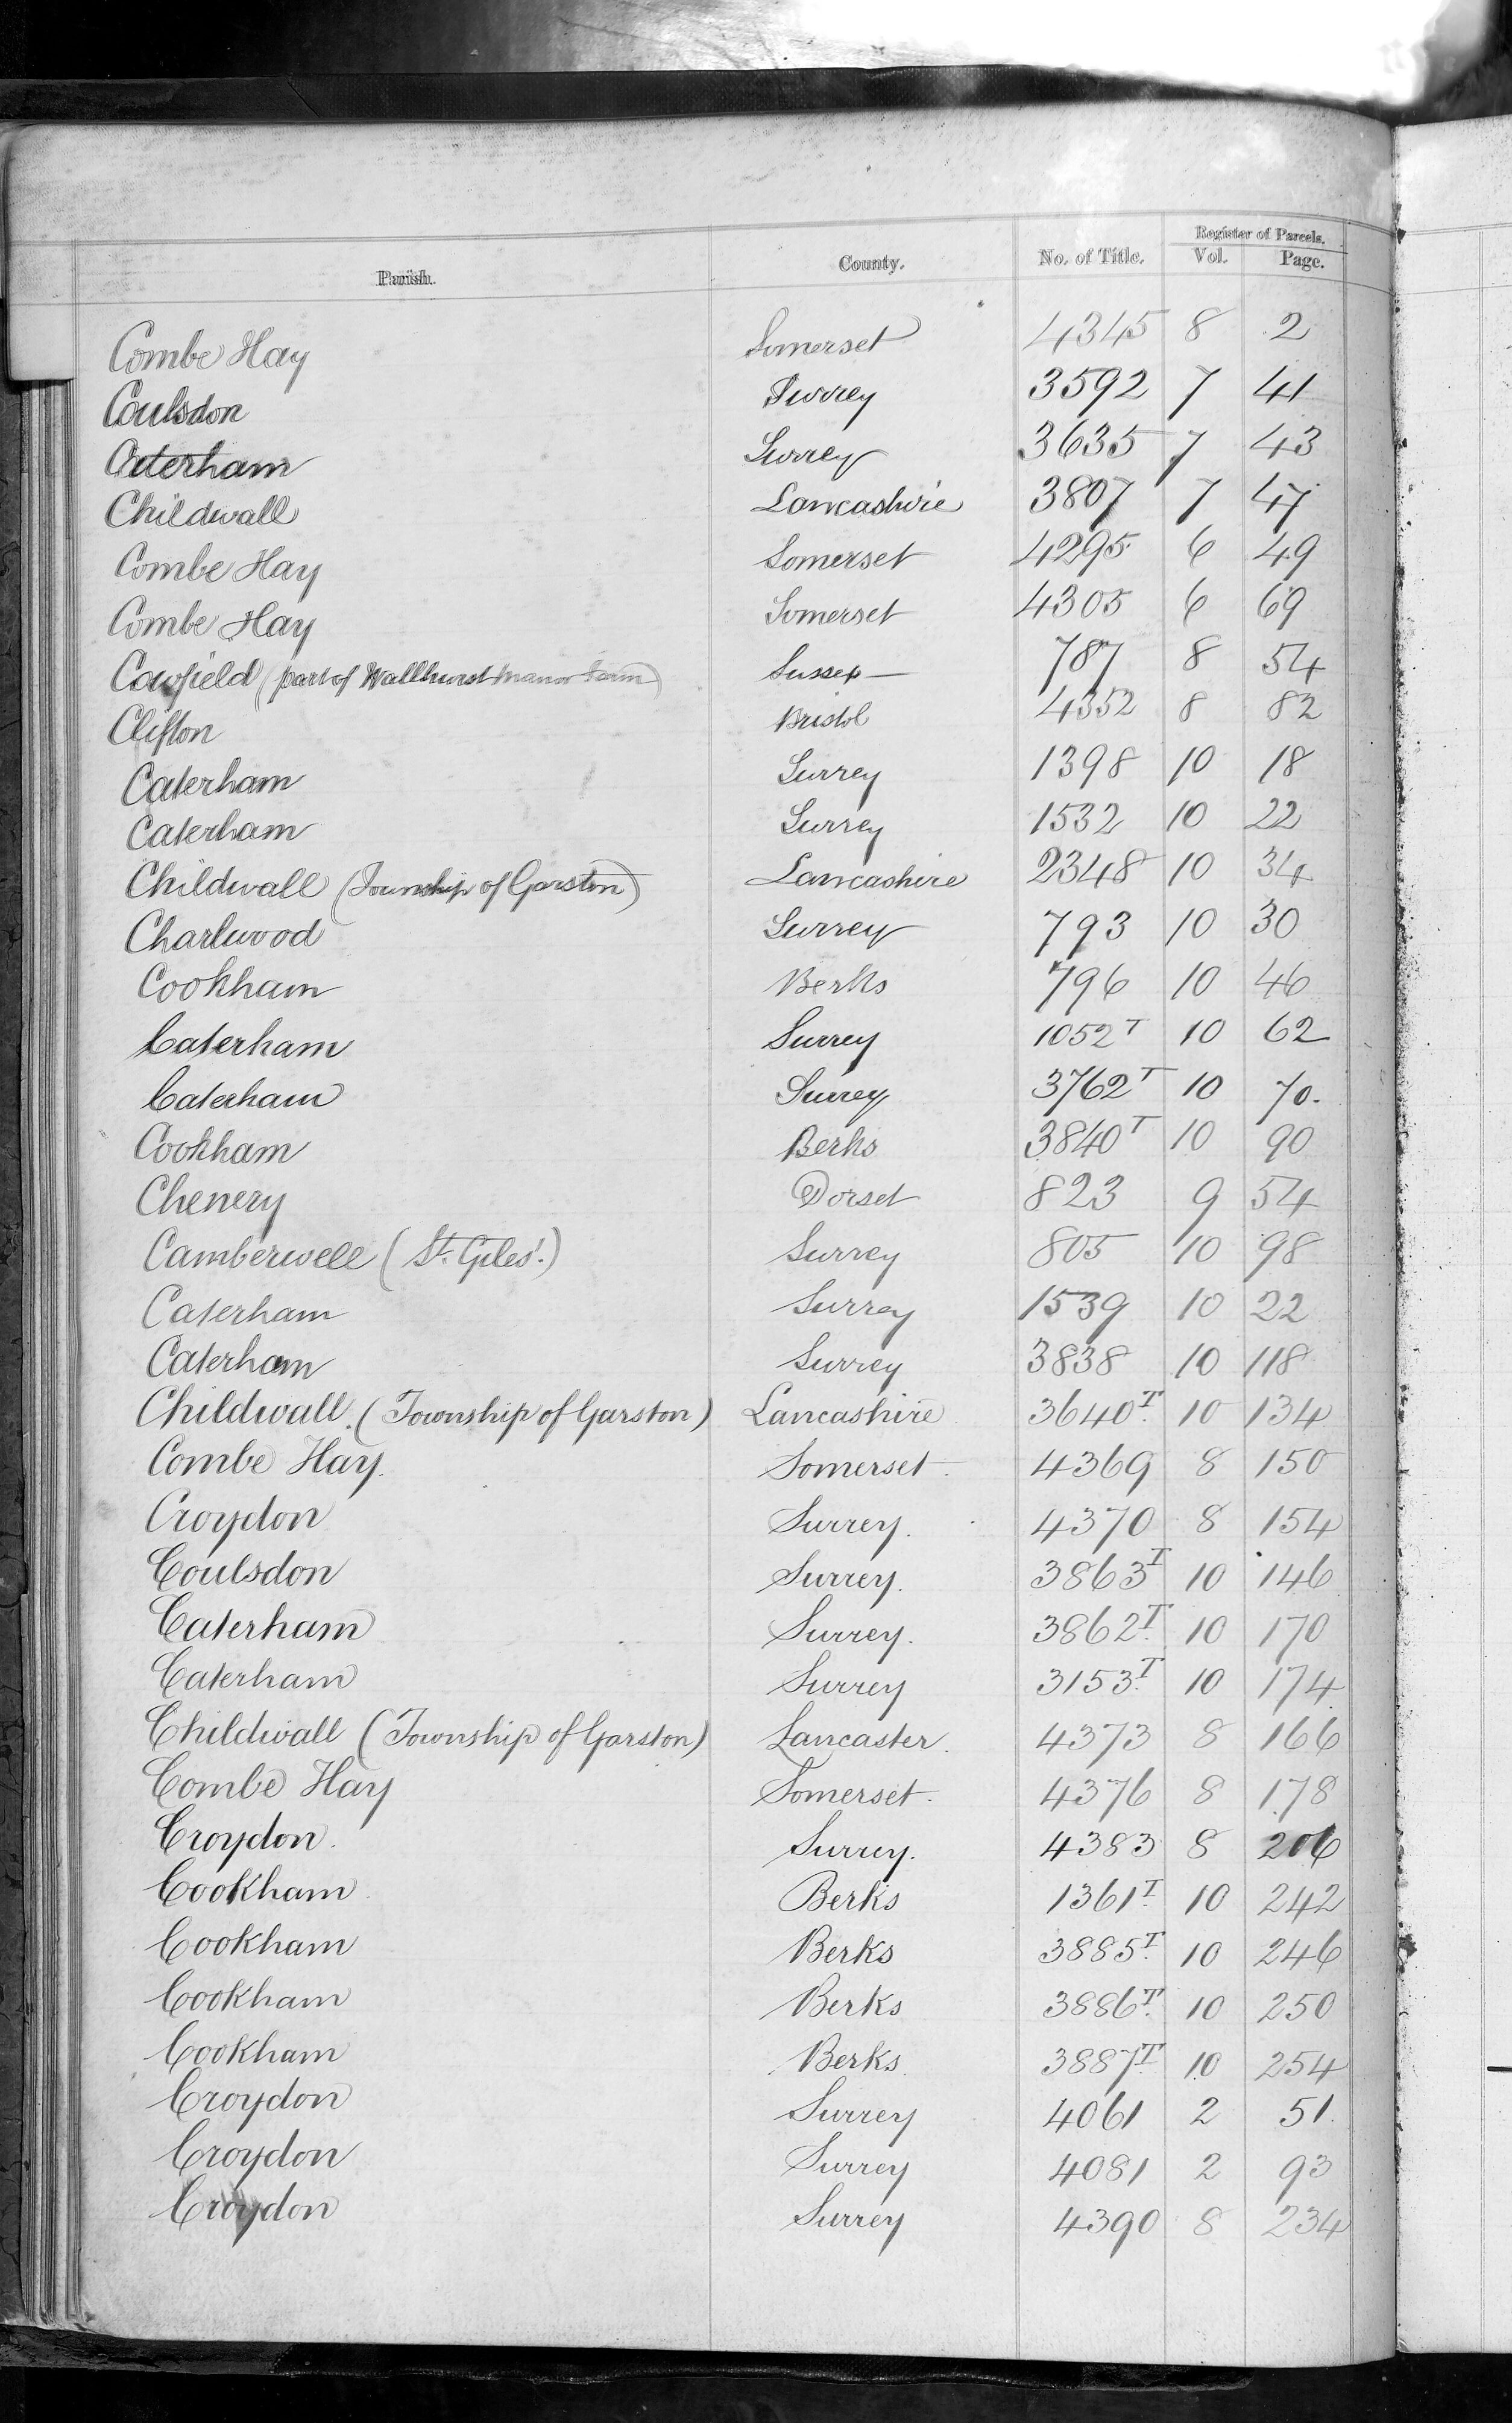 Parish. County. No. of Title. Register of Parcels. Vol. Page.
Combe Hay Somerset 4345 8 2
Coulsdon Surrey 3592 7 41
Caterham Surrey 3635 7 43
Childwall Lancashire 3807 7 47
Combe Hay Somerset 4295 6 49
Combe Hay Somerset 4305 6 69
Cowfield (part of Wallhurst Manor Farm) Sussex 787 8 54
Clifton Bristol 4352 8 82
Caterham Surrey 1398 10 18
Caterham Surrey 1532 10 22
Childwall (Township of Garston) Lancashire 2348 10 34
Charlwood Surrey 793 10 30
Cookham Berks 796 10 46
Caterham Surrey 1052T 10 62
Caterham Surrey 3762T 10 70.
Cookham Berks 3840T 10 90
Chenery Dorset 823 9 54
Camberwell (St. Giles'.) Surrey 805 10 98
Caterham Surrey 1539 10 22
Caterham Surrey 3838 10 118
Childwall. (Township of Garston) Lancashire 3640T. 10 134
Combe Hay. Somerset. 4369 8 150
Croydon Surrey. 4370 8 154
Coulsdon Surrey. 3863T 10 146
Caterham Surrey. 3862T. 10 170
Caterham Surrey 3153T. 10 174
Childwall (Township of Garston) Lancaster. 4373 8 166
Combe Hay Somerset. 4376 8 178
Croydon. Surrey. 4383 8 206
Cookham Berks 1361T. 10 242
Cookham Berks 3885T. 10 246
Cookham Berks 3886T. 10 250
Cookham Berks. 3887T. 10 254
Croydon Surrey 4061 2 51.
Croydon Surrey 4081 2 93
Croydon Surrey 4390 8 234